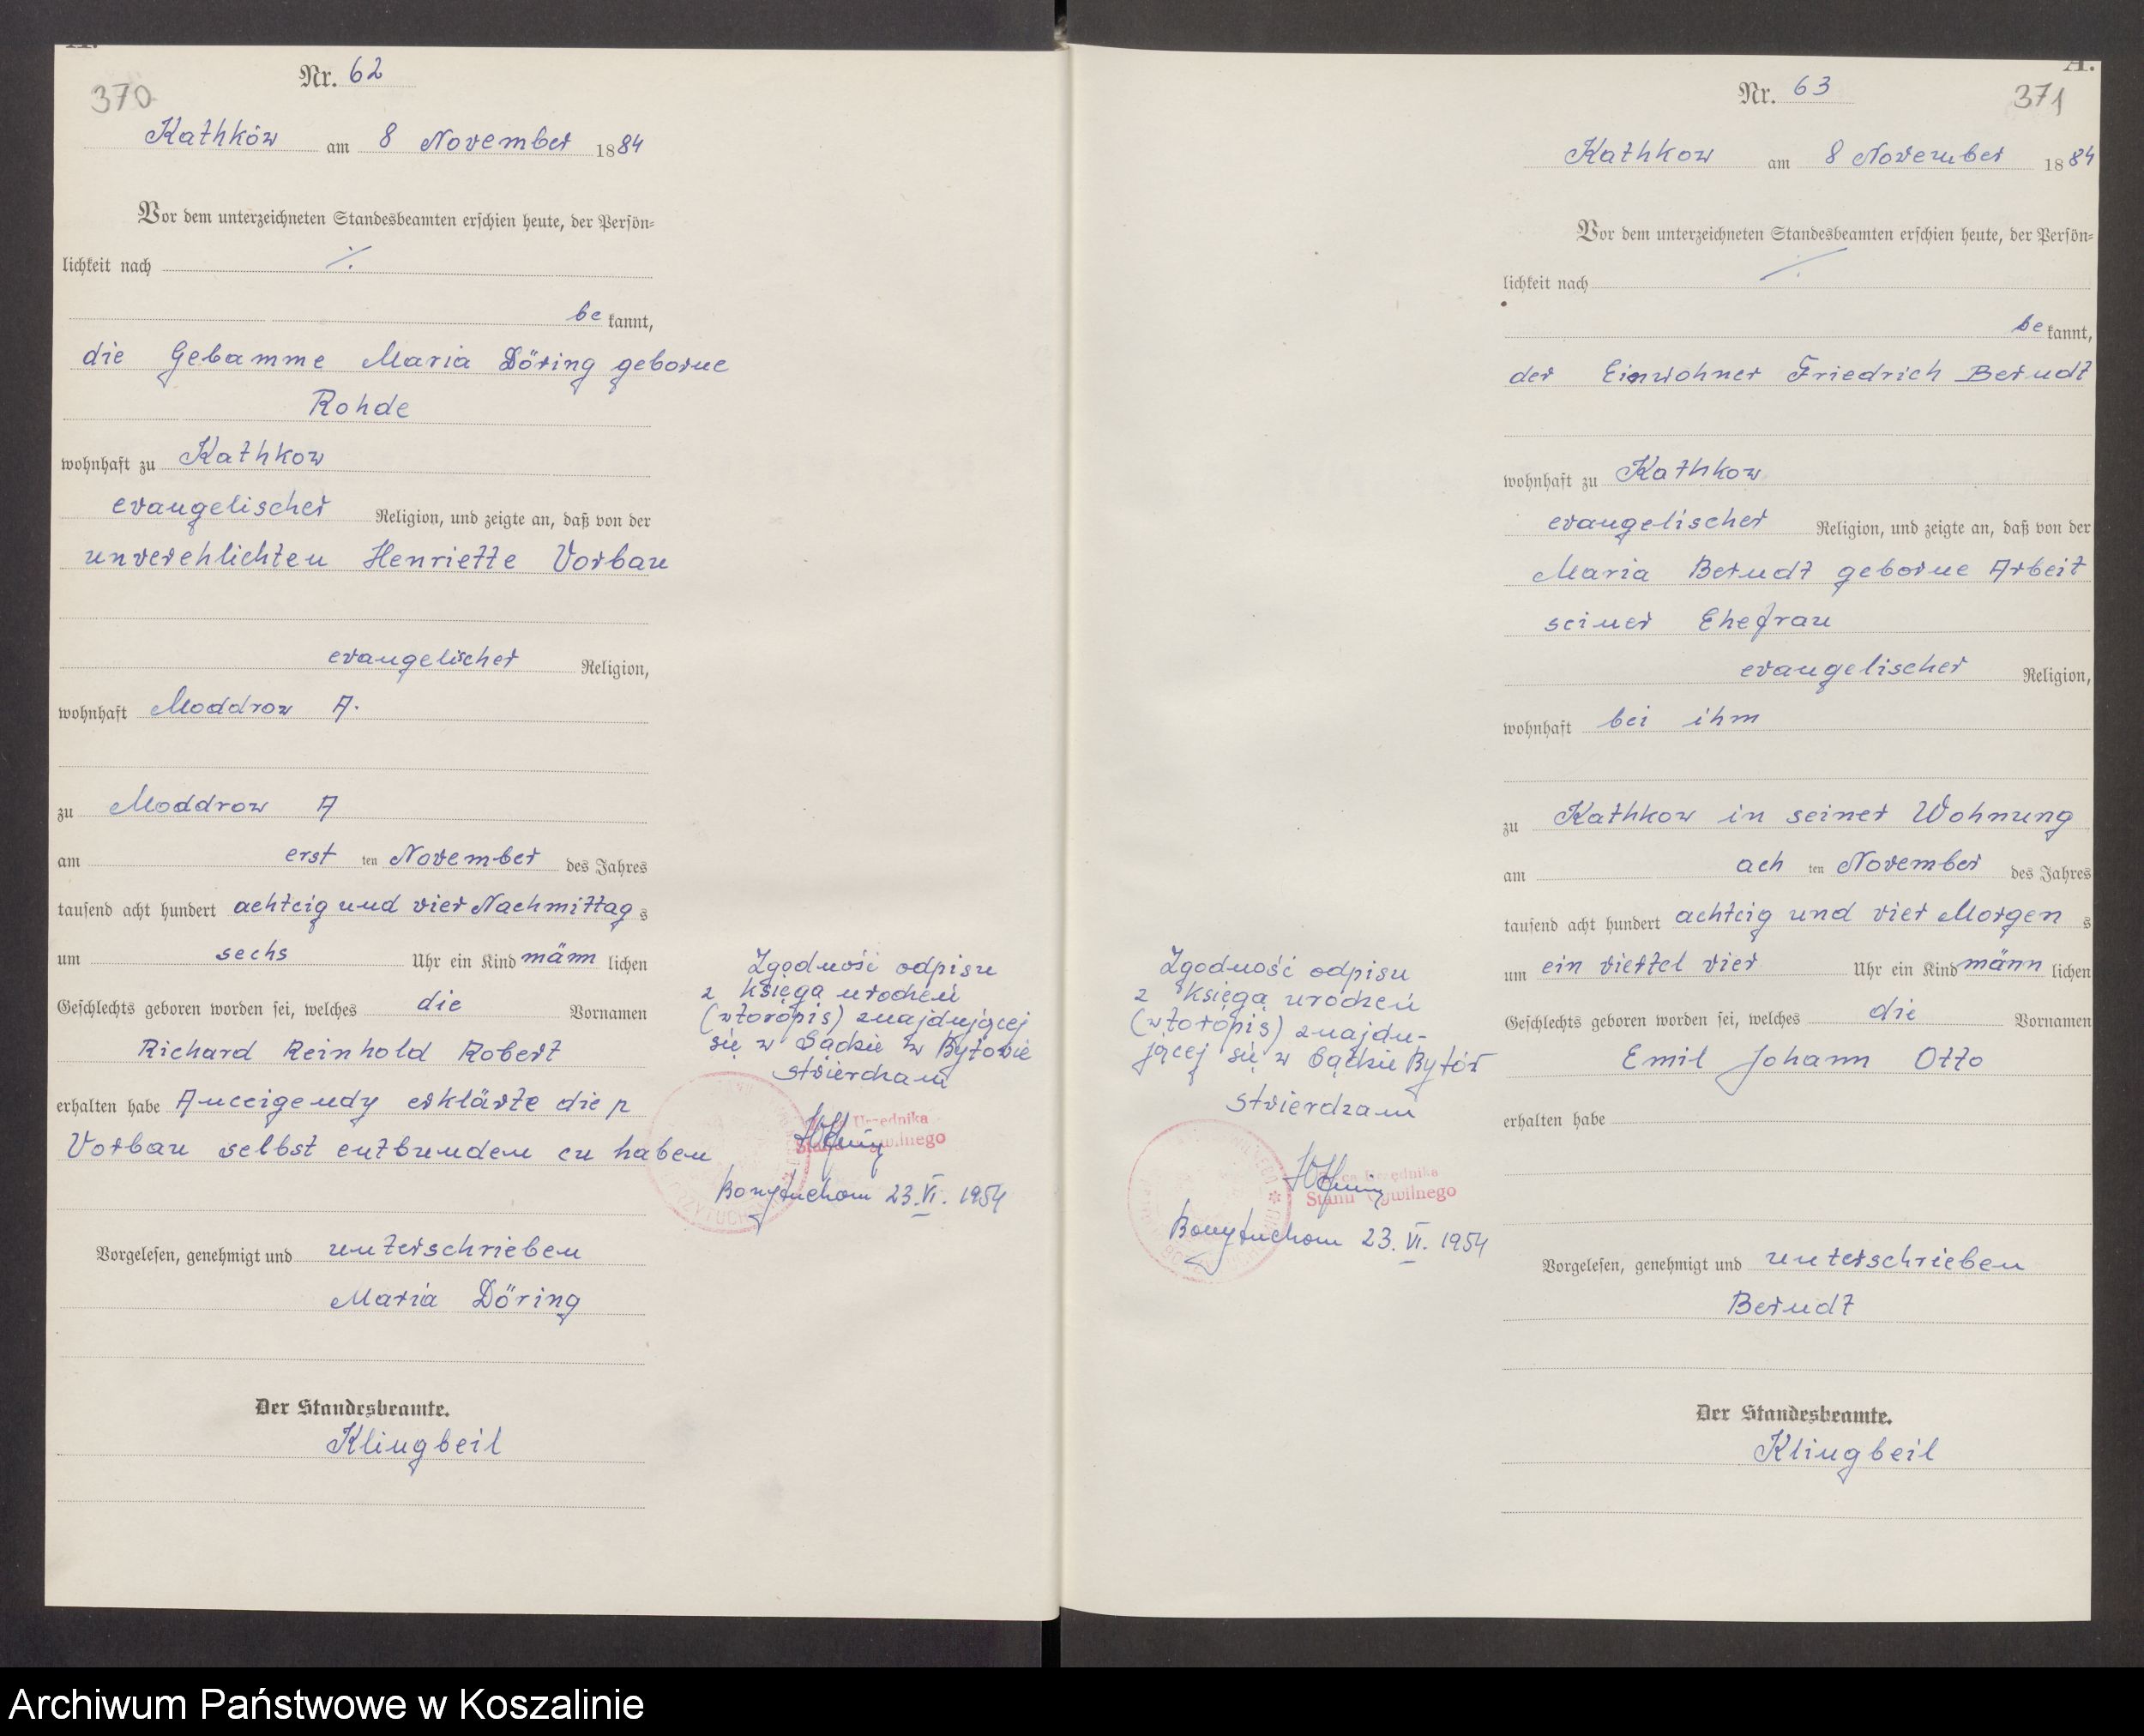 A.
Nr. 62
370
Kathków am 8 November 1884
Vor dem unterzeichneten Standesbeamten erschien heute, der Persön=
lichkeit nach ·/.
be kannt,
die Gebamme Maria Döring geborne
Rohde
wohnhaft zu Kathkow
evangelischer Religion, und zeigte an, daß von der
unverehlichten Henriette Vorbau
evangelischer Religion,
wohnhaft Moddrow A.
zu Moddrow A
am erst ten November des Jahres
tausend acht hundert achtcig und vier Nachmittag s
um sechs Uhr ein Kind männ lichen
Geschlechts geboren worden sei, welches die Vornamen
Richard Reinhold Robert
erhalten habe Anceigendy erklärte die p
Vorbau selbst entbunden cu haben
Vorgelesen, genehmigt und unterschrieben
Maria Döring
Der Standesbeamte.
Klingbeil
Zgodność odpisu
z księgą urodzeń
(wtóropis) znajdującej
się w Sądzie w Bytowie
stwierdzam
Urzędnika
Stanu Cywilnego
Borzytuchom 23.VI. 1954
A.
Nr. 63
371
Kathkow am 8 November 1884
Vor dem unterzeichneten Standesbeamten erschien heute, der Persön=
lichkeit nach ·/.
be kannt,
der Einwohner Friedrich Berndt
wohnhaft zu Kathkow
evangelischer Religion, und zeigte an, daß von der
Maria Berndt geborne Arbeit
seiner Ehefrau
evangelischer Religion,
wohnhaft bei ihm
zu Kathkow in seiner Wohnung
am ach ten November des Jahres
tausend acht hundert achtcig und vier Morgen s
um ein viertel vier Uhr ein Kind männ lichen
Geschlechts geboren worden sei, welches die Vornamen
Emil Johann Otto
erhalten habe
Vorgelesen, genehmigt und unterschrieben
Berndt
Der Standesbeamte.
Klingbeil
Zgodność odpisu
z księgą urodzeń
(wtóropis) znajdu-
jącej się w Sądzie Bytów
stwierdzam
Urzędnika
Stanu Cywilnego
Borzytuchom 23.VI. 1954
Archiwum Państwowe w Koszalinie